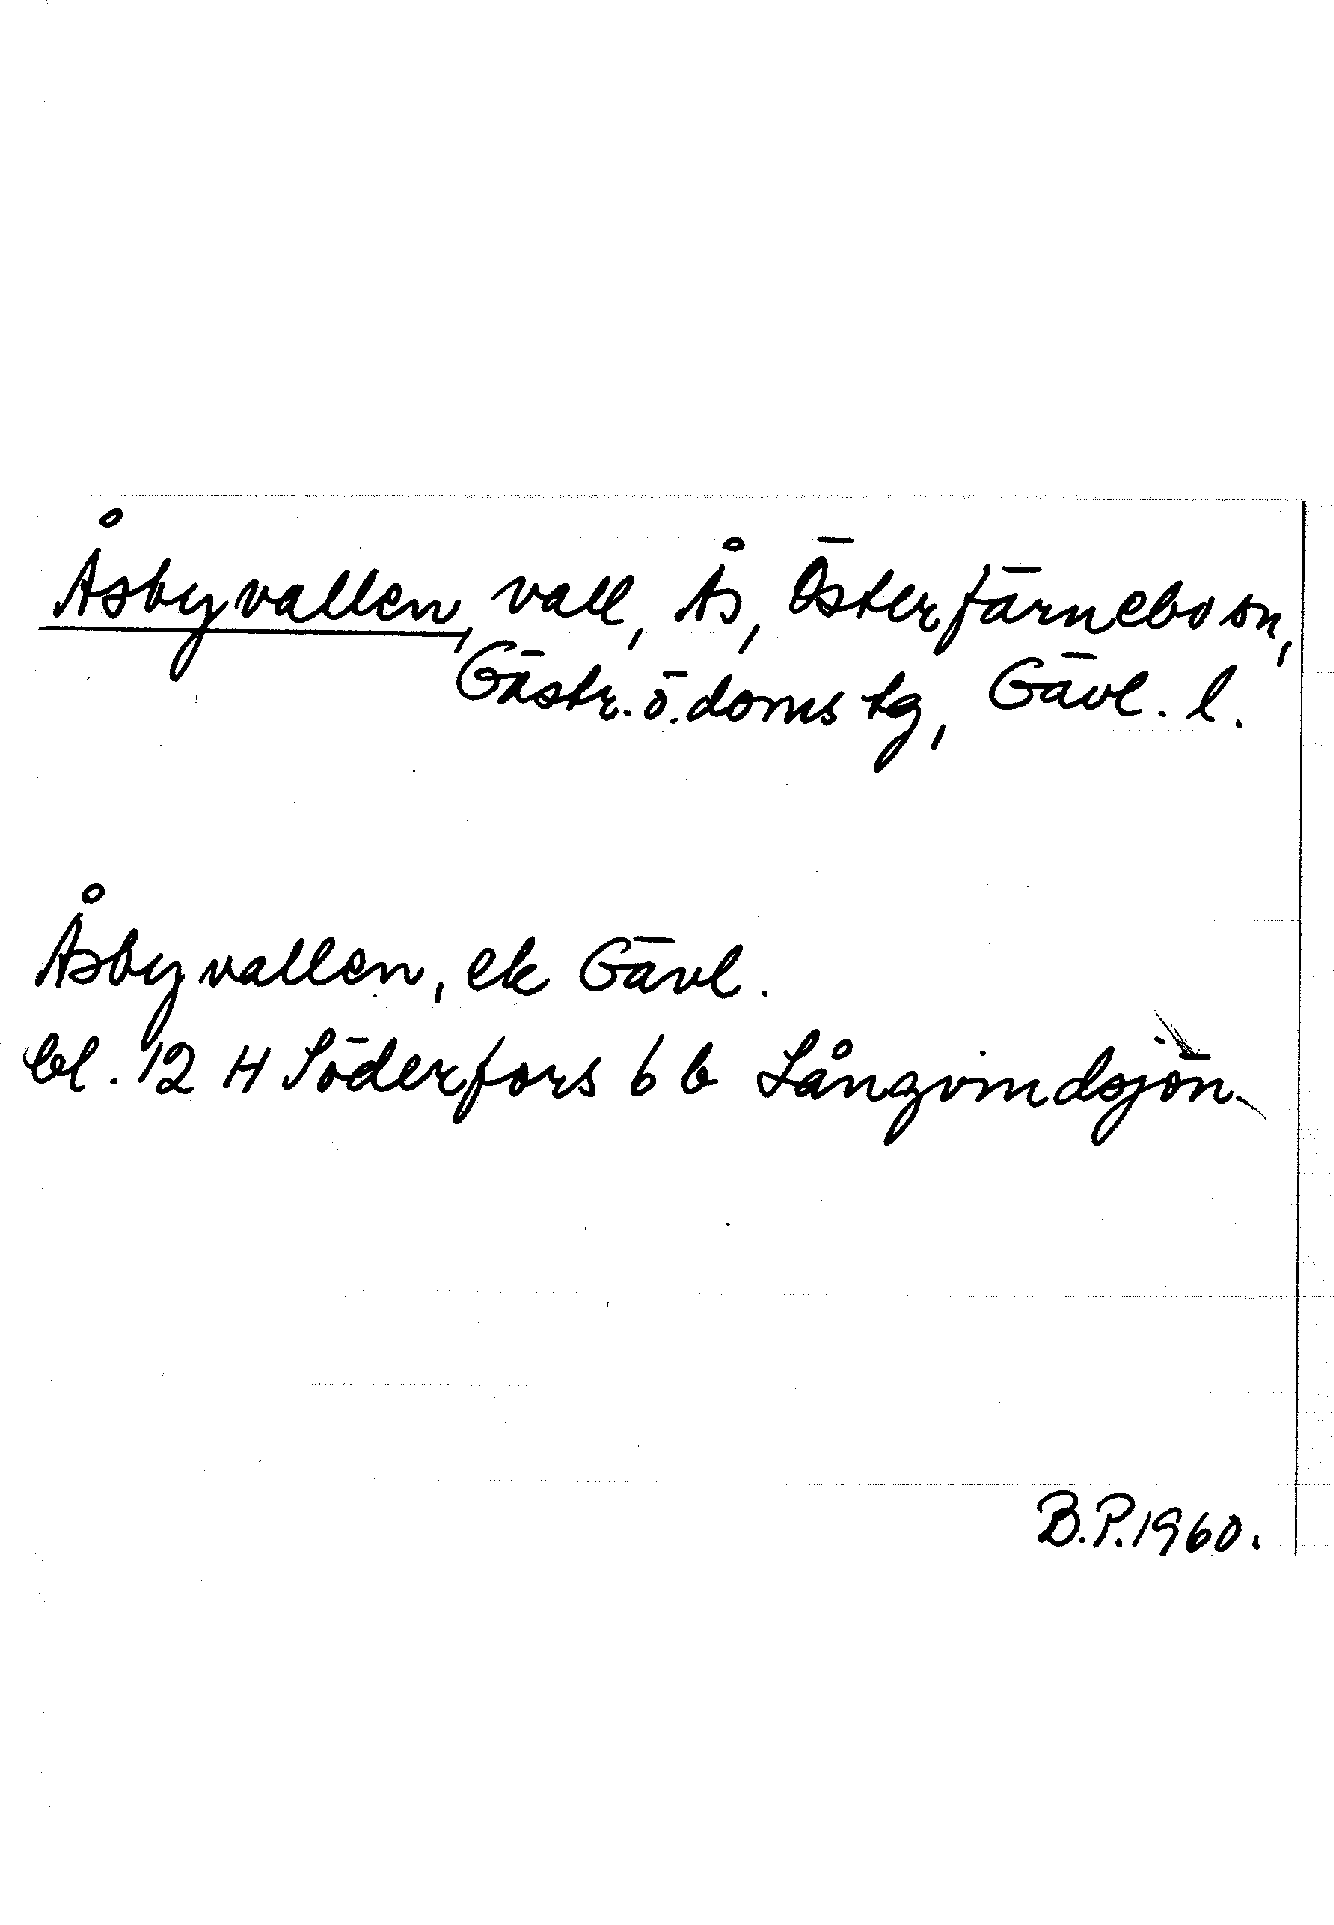 Åsbyvallen, vall, Ås, Österfärnebo sn,
Gästr. ö. doms tg, Gävl. l.
Åsbyvallen, ek Gävl.
bl. 12 H Söderfors 6 b Långvindsjön
B.P. 1960.